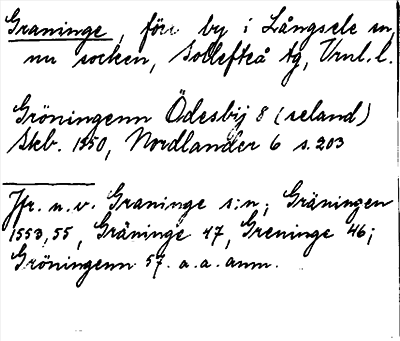 Graninge, förr by i Långsele sn,
nu socken, Sollefteå tg, Vrnl. l.
Gröningenn Ödesbij 8 (seland)
Skb. 1550, Nordlander 6 s. 203
Jfr. n.v. Graninge s:n; Gräningen
1553, 55, Gräninge 47, Greninge 46;
Gröningenn 57. a.a. anm.